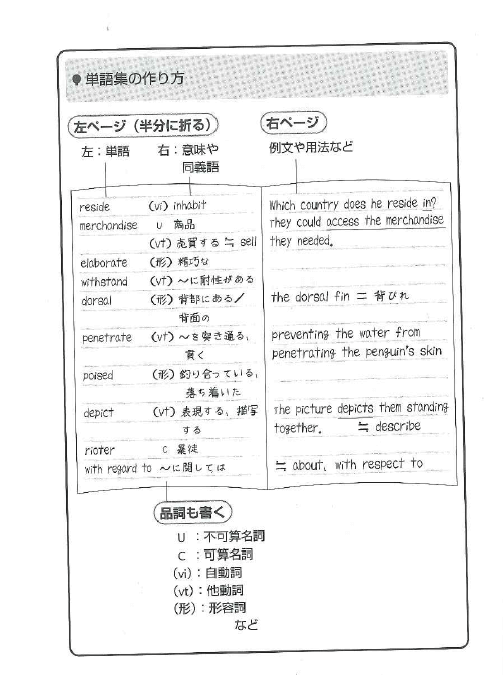 ●単語集の作り方
左ページ（半分に折る）
左：単語　右：意味や
同義語
右ページ
例文や用法など
reside (vi) inhabit
merchandise U 商品
(vt) 売買する ≒ sell
elaborate (形) 精巧な
withstand (vt) 〜に耐性がある
dorsal (形) 背部にある／
背面の
penetrate (vt) 〜を突き通る、
貫く
poised (形) 釣り合っている、
落ち着いた
depict (vt) 表現する、描写
する
rioter C 暴徒
with regard to 〜に関しては
Which country does he reside in?
They could access the merchandise
they needed.
the dorsal fin = 背びれ
preventing the water from
penetrating the penguin's skin
The picture depicts them standing
together. ≒ describe
≒ about, with respect to
品詞も書く
U ：不可算名詞
C ：可算名詞
(vi)：自動詞
(vt)：他動詞
(形)：形容詞
など